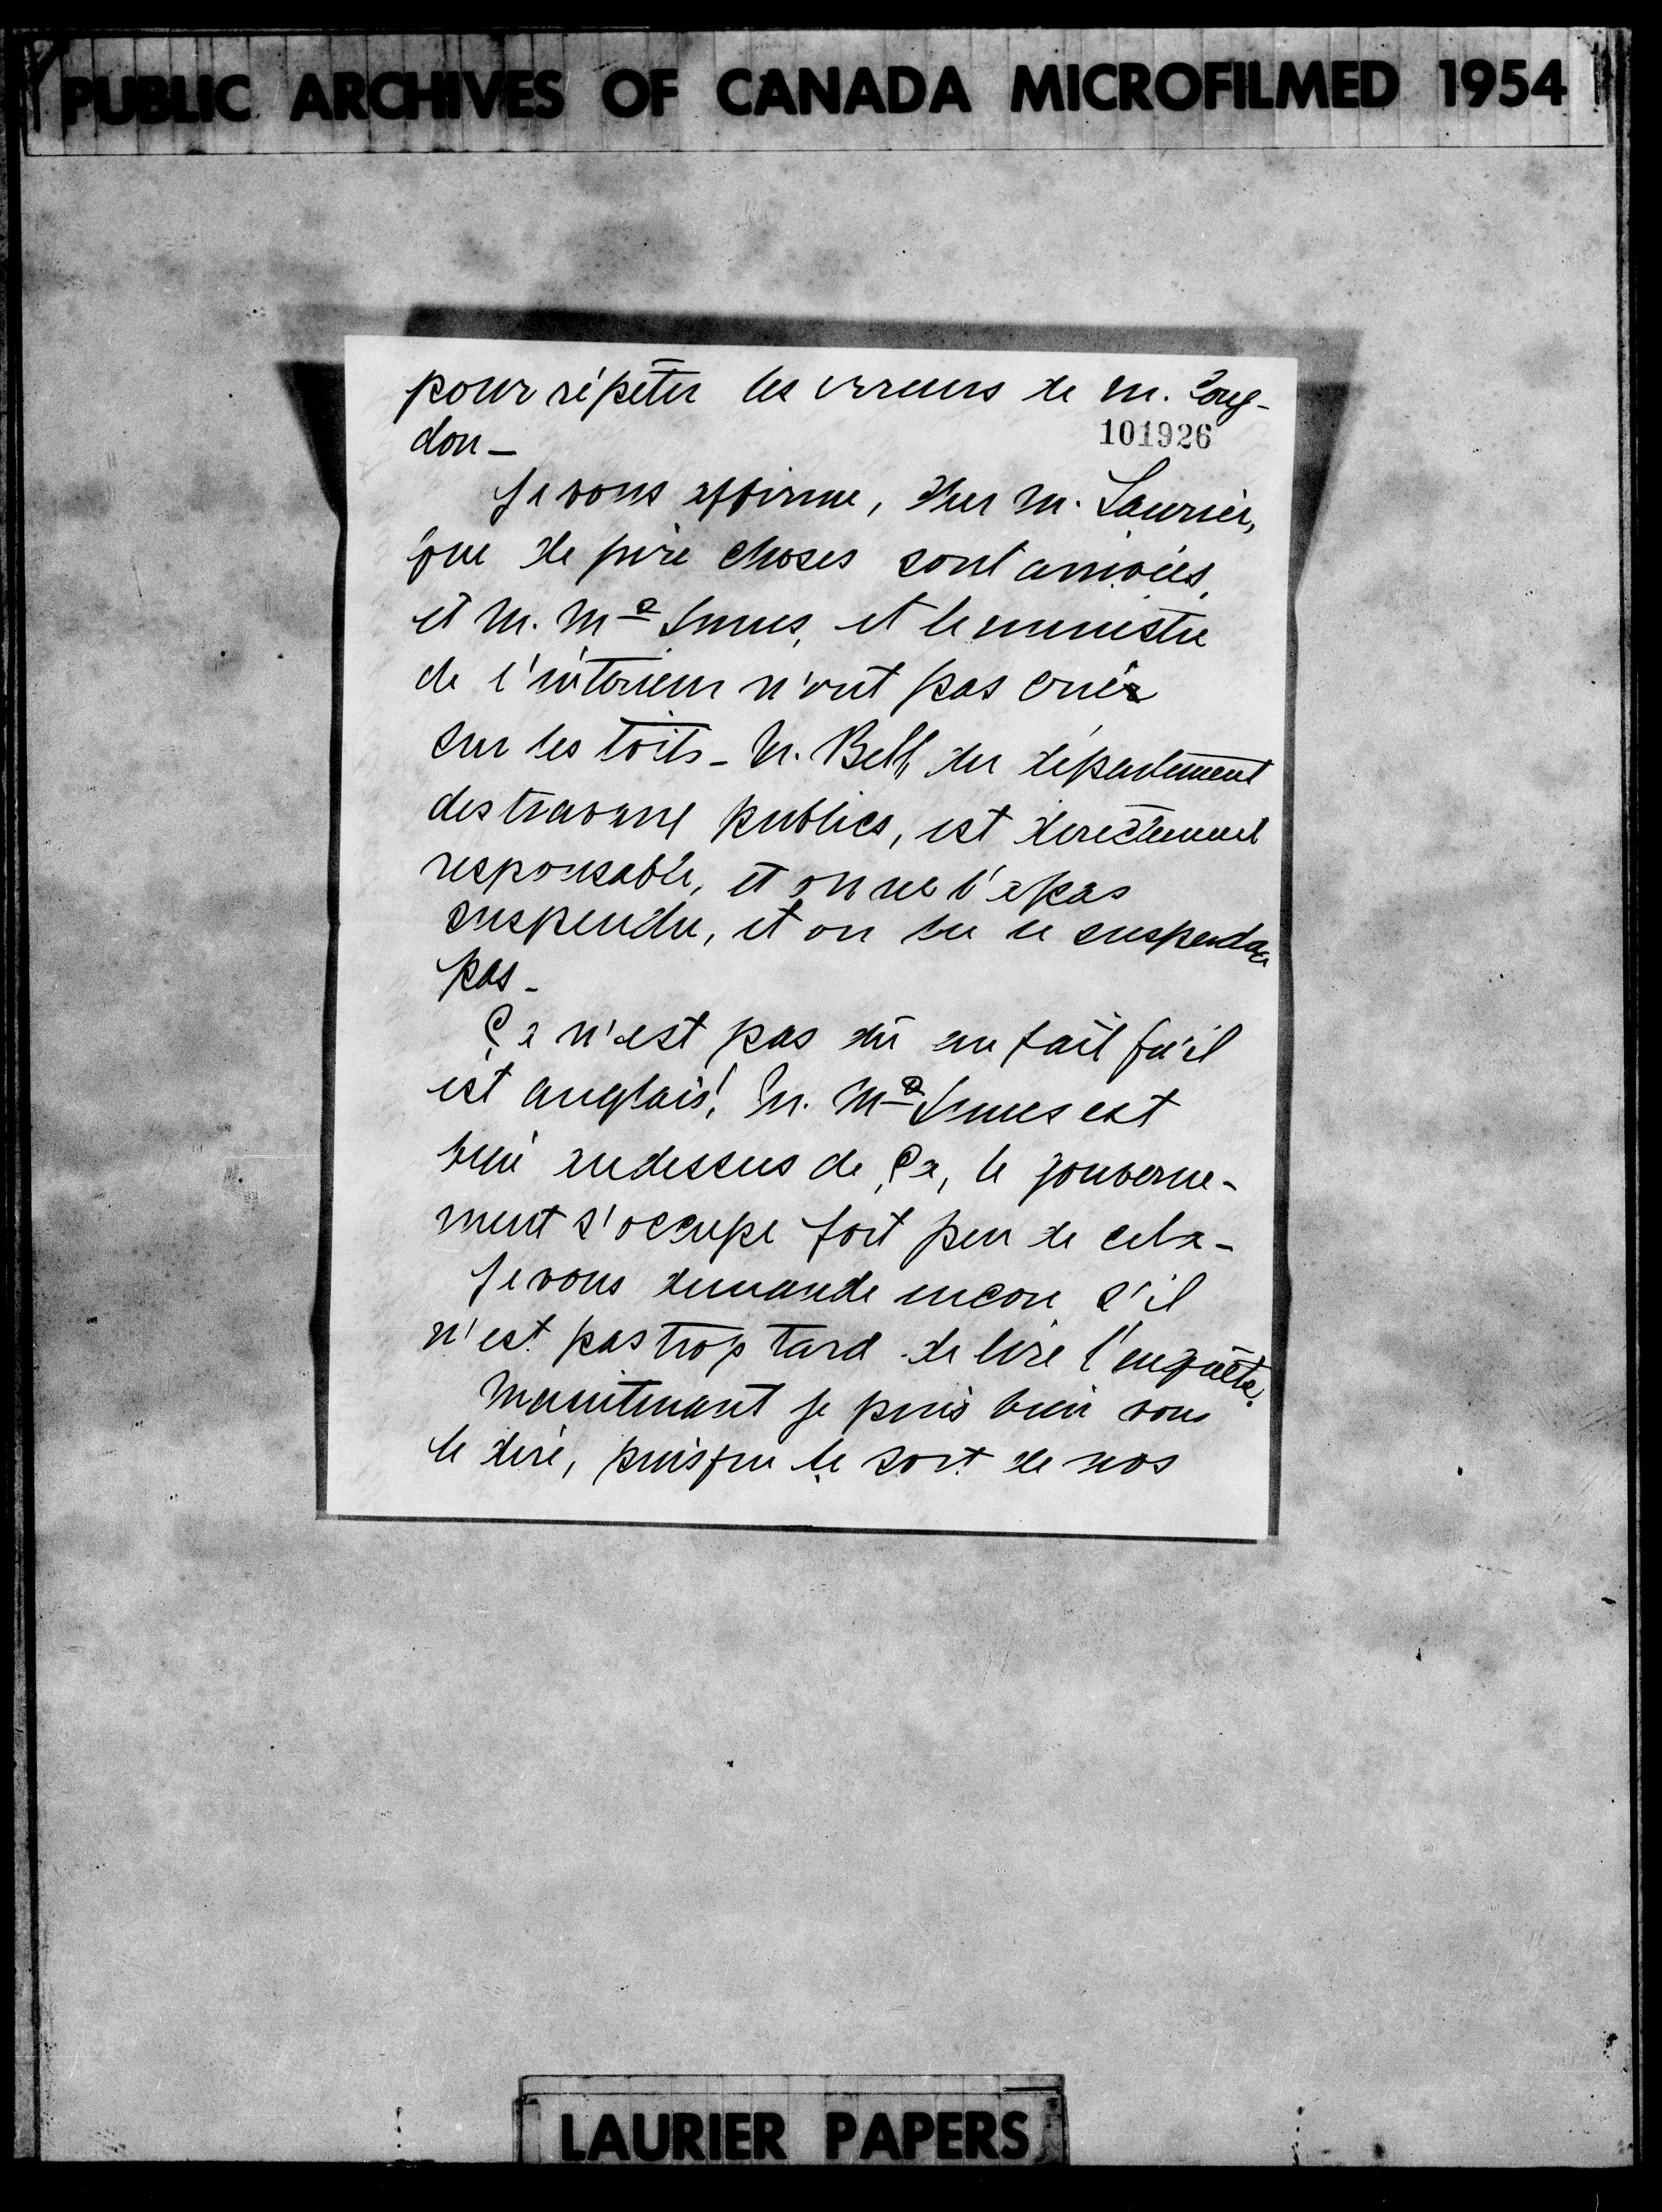 PUBLIC ARCHIVES OF CANADA MICROFILMED 1954
pour répéter les erreurs de M. Cong-
don -
101926
Je vous affirme, cher M. Laurier,
que de pire choses sont arrivées,
et M. McInnes, et le ministre
de l'intérieur n'ont pas crié
sur les toits - M. Bell, du département
des travaux publics, est directement
responsable, et on ne l'a pas
suspendu, et on ne le suspendra
pas -
Ça n'est pas dû au fait qu'il
est anglais! M. McInnes est
bien audessus de ça, le gouverne-
ment s'occupe fort peu de cela -
Je vous demande encore s'il
n'est pas trop tard de lire l'enquête.
Maintenant je puis bien vous
le dire, puisque le sort de nos
LAURIER PAPERS